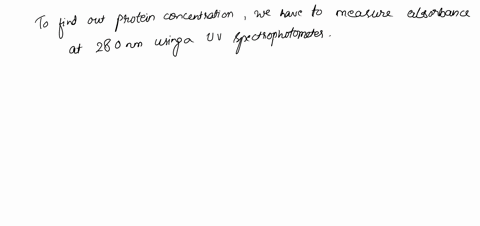 To find out protein concentration, we have to measure absorbance
at 280 nm using a UV spectrophotometer.